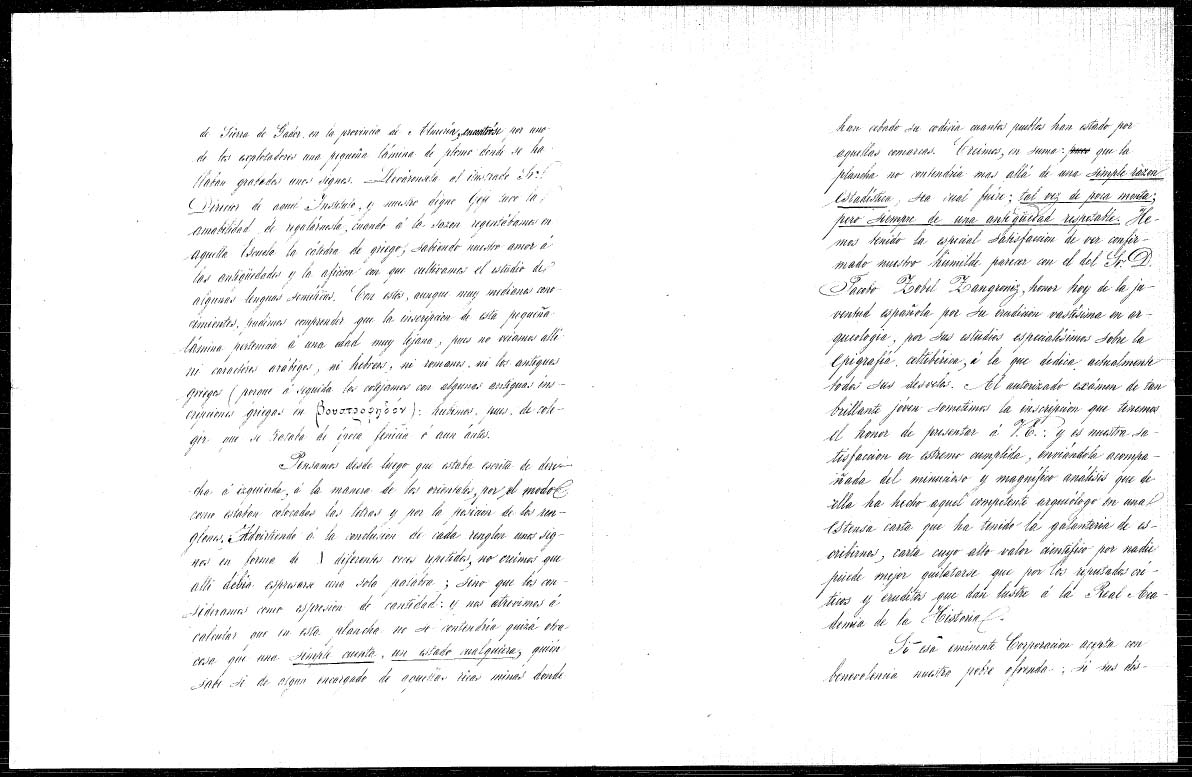 de Sierra de Gador, en la provincia de Almería, encontróse por uno
de los explotadores una pequeña lámina de plomo donde se ha-
llaban grabados unos signos. Lleváronsela al ilustrado Sr.
Director de aquel Instituto, y nuestro amigo que tuvo la
amabilidad de regalárnosla, cuando á la sazon regentábamos en
aquella Escuela la cátedra de griego; sabiendo nuestro amor á
las antigüedades y la aficion con que cultivamos el estudio de
algunas lenguas semíticas. Con estos, aunque muy medianos cono-
cimientos, pudimos comprender que la inscripcion de esta pequeña
lámina pertenecia á una edad muy lejana, pues no veíamos allí
ni caracteres arábigos, ni hebreos, ni romanos, ni los antiguos
griegos (porque á seguida los cotejamos con algunas antiguas ins-
cripciones griegas en βουστροφηδόν): hubimos, pues, de cole-
gir que se trataba de época fenicia ó aun ántes.
Pensamos desde luego que estaba escrita de dere-
cha á izquierda, á la manera de los orientales, por el modo
como estaban colocadas las letras y por la posicion de los ren-
glones. Advirtiendo á la conclusion de cada renglon unos sig-
nos en forma de \ diferentes veces repetidos, no creimos que
allí debia espresarse una sola palabra; sino que los con-
sideramos como espresion de cantidad: y nos atrevimos á
calcular que en esta plancha no se contendria quizá otra
cosa que una simple cuenta, un estado cualquiera; quién
sabe si de algun encargado de aquellas ricas minas donde
han cebado su codicia cuantos pueblos han estado por
aquellas comarcas. Creimos, en suma: que la
plancha no contendria mas allá de una simple razon
estadística, sea cual fuere; tal vez de poca monta;
pero siempre de una antigüedad respetable. He-
mos tenido la especial satisfaccion de ver confir-
mado nuestro humilde parecer con el del Sr. D.
Jacobo Zobel Zangroniz, honor hoy de la ju-
ventud española por su erudicion vastísima en ar-
queología, por sus estudios especialísimos sobre la
Epigrafía celtibérica, á la que dedica actualmente
todos sus desvelos. Al autorizado exámen de tan
brillante jóven sometimos la inscripcion que tenemos
el honor de presentar á V.E.: y es nuestra sa-
tisfaccion en estremo cumplida, enviándola acompa-
ñada del minucioso y magnífico análisis que de
ella ha hecho aquel competente arqueólogo en una
estensa carta que ha tenido la galantería de es-
cribirnos, carta cuyo alto valor científico por nadie
puede mejor quilatarse que por los reputados crí-
ticos y eruditos que dan lustre á la Real Aca-
demia de la Historia.
Si esa eminente Corporacion acepta con
benevolencia nuestra pobre ofrenda; si sus des-